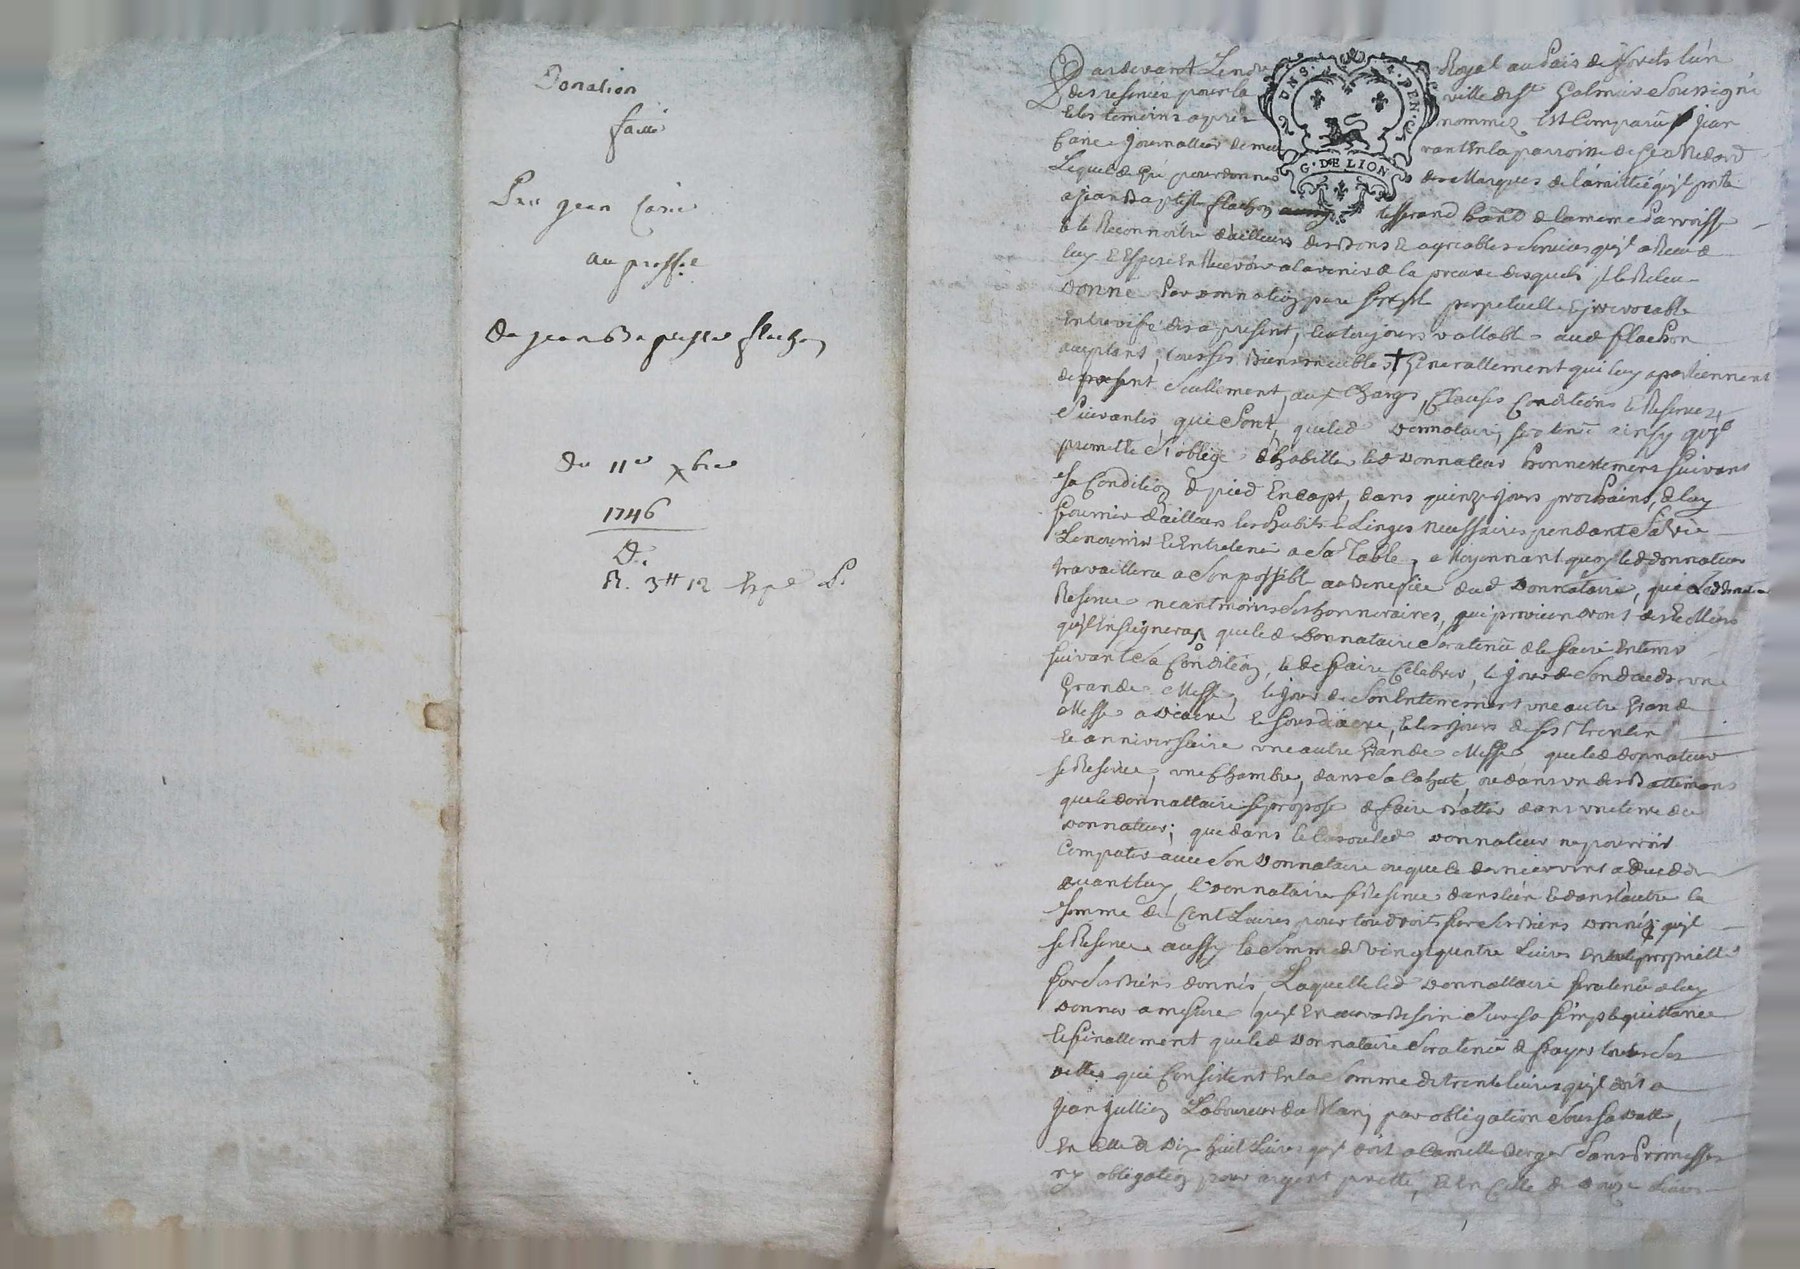 Donation
faitte
Par jean Carie
au proffit
De jean Baptiste flachon
Du 11e xbre
1746
D.
R. 3tt 12
Pardevant Leno Royal au Pais de fforets lun
des reservés pour la ville de St Galmier Soussigné
Et les temoins apres nommez Est Comparu jean
Carie journallier demeu rant En la parroisse de St Medard
GDELION
Lequel de gré pour donner des Marques de l'amittié qu'jl porte
a jean Baptiste flachon tisserand habt de la meme Parroisse
& le Reconnoitre d'ailleurs des Bons & agreables Services qu'jl a Receu de
luy & Espere En Recevoir a lavenir de la preuve desquels jl le Releve
Donne Par donnation pure perpetuelle & jrrevocable
Entrevifs des a present, & a toujours vallable aud flachon
acceptant, tous ses Biens meubles † Generallement qui luy apartiennent
de present Seullement, aux Charges, Clauses Conditions & Reserves
Suivantes, qui Sont, que led Donnataire, sera tenu ainsy qu'jl
promette & s'oblige d'habiller led Donnateur honnestement suivant
Sa Condition de pied En Capt, dans quinze jours prochains, de luy
fournir d'ailleurs les habits & Linges necessaires pendant Sa Vie
Le nourrir & Entretenir a Sa Table, Moyennant quoy led donnateur
travaillera a Son possible au Benefice dud Donnataire, que Led donnateur
Reserve neantmoins Ses honneraires, qui proviendront des Ecolliers
qu'jl Enseignera, que led Donnataire Sera tenu de le faire Enterrer
suivant Sa Condition, & de faire Celebrer, le jour de Son deceds une
Grande Messe, le jour de Son Enterrement une autre Grande
Messe a Diacre & Sousdiacre, & les jours de ses Trentin
& anniversaire une autre Grande Messe que led donnateur
se Reserve, une Chambre, dans Sa ou dans un des Battimens
que le donnattaire se propose de faire Battir dans une terre du
Donnateur; que dans le Cas ou led Donnateur ne pourroit
Compatir avec Son Donnataire ou que le dernier vint a deceder
avant luy, le Donnataire se Reserve dans l'un & dans l'autre la
Somme de Cent Livres pour tout droit sur Ses Biens donnés; qu'jl
se Reserve aussy la Somme de Vingt quatre Livres En propriette
sur Ses Biens donnés, Laquelle led Donnattaire sera tenu de luy
Donner a mesure qu'jl En aura Besoin Sur sa simple quittance
& finallement que led Donnataire Sera tenu de payer toutes Ses
dettes qui Consistent En la Somme de trente livres qu'jl doit a
Jean jullien Laboureur du par obligation Sous Sa datte,
En Celle de Dix huit Livres qu'jl doit a Camille Berger Sans Promesse
ny obligation pour argent pretté, & En Celle de Douze Livres